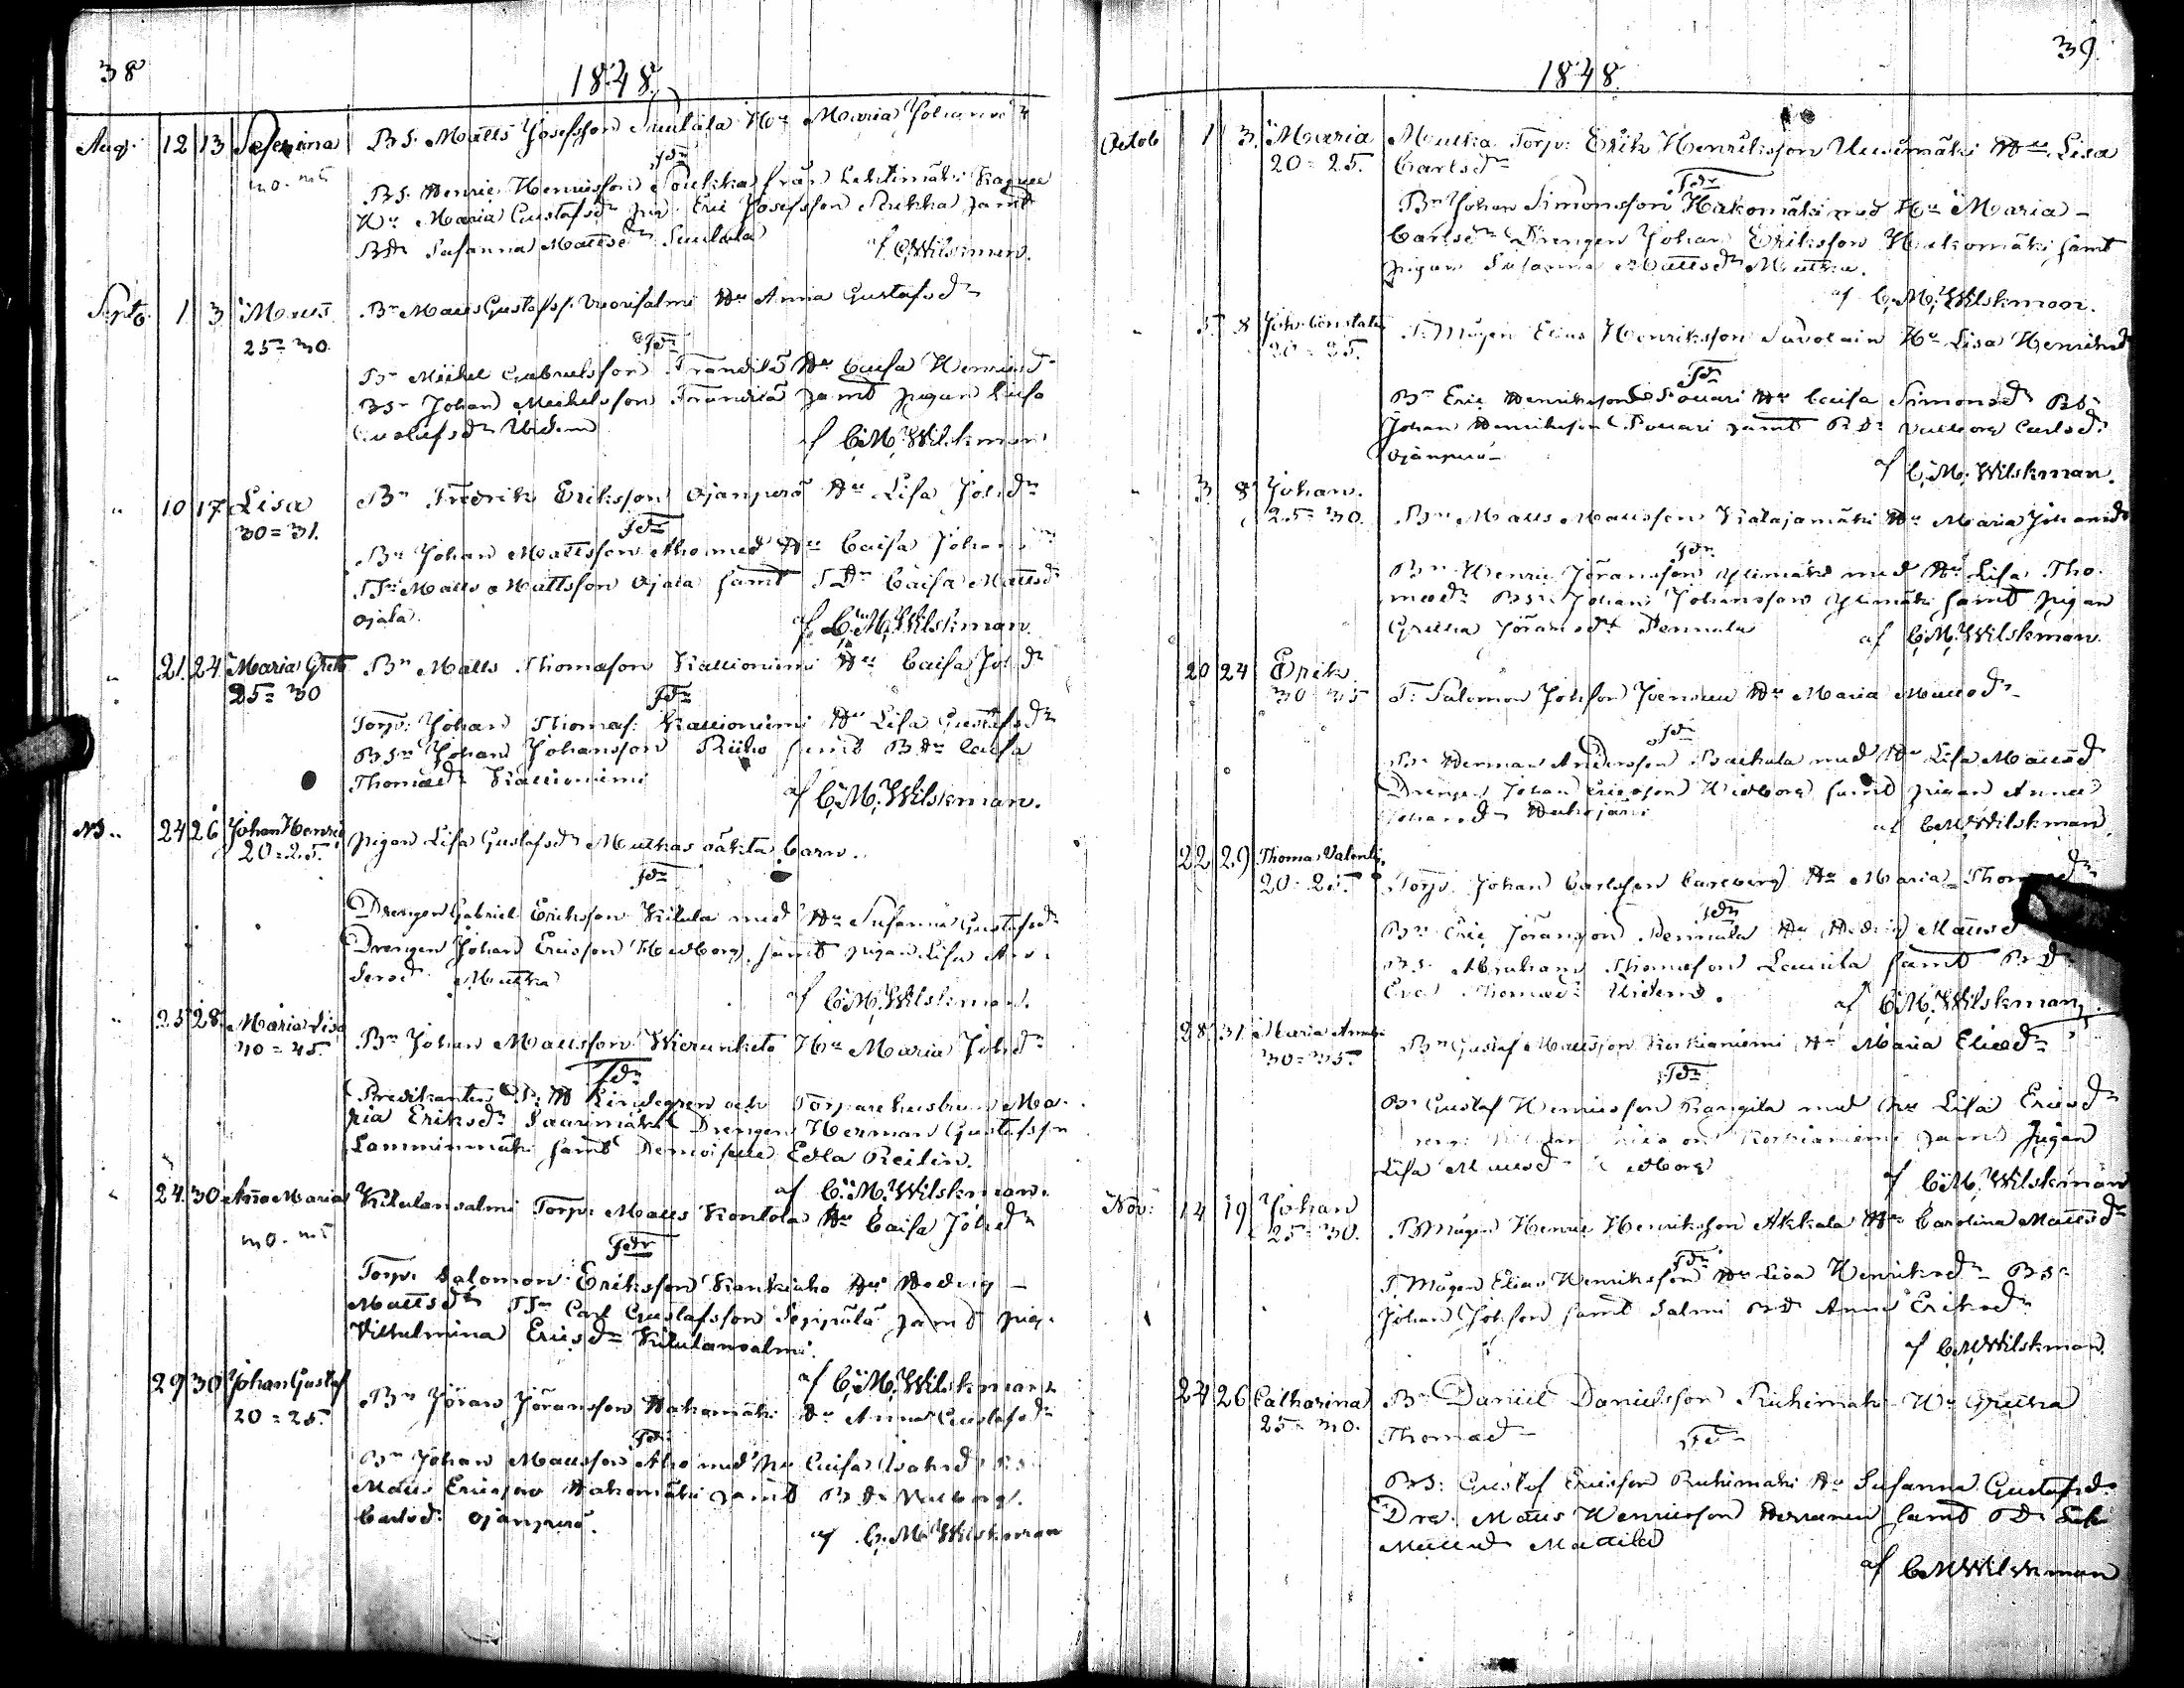 38
1848.
Aug. 12 13 Seferina Bs. Matts Josefsson Suulala Hu Maria Johansdr
30. 35 Fdr
Bs. Henric Henricsson Poukka från Lehtimäki
Hu Maria Gustafsdr Eric Josefsson Pukka samt
Bdr Susanna Mattsdr Suulala
af C.M. Wilskman.
Septb. 1 3 Matts Bn Matts Gustafss. Vuorisalmi Hu Anna Gustafsdr
25 = 30. Fdr
Bn Mickel Gabrielsson Trändilä Hu Caisa Henricsdr
Bsn Johan Mickelsson Trändilä samt pigan Caisa
Gustafsdr
af C.M. Wilskman
" 10 17 Lisa Bn Fredrik Eriksson Ojanperä Hu Lisa Johsdr
30 = 31. Fdr
Bn Johan Mattsson Aho med Hu Caisa Johansdr
TSn Matts Mattsson Ojala samt TDr Caisa Mattsdr
Ojala.
af C.M. Wilskman.
" 21. 24. Maria Greta Bn Matts Thomasson Kallioniemi Hu Caisa Johsdr
25 = 30 Fdr
Torp: Johan Thomas: Kallioniemi Hu Lisa Gustafsdr
Bsn Johan Johansson Riiho samt Bdr Caisa
Thomasdr Kallioniemi
af C.M. Wilskman.
24 26 Johan Henric pigan Lisa Gustafsdr Mutkas oäkta barn.
20 = 25. Fdr
Drengen Gabriel Eriksson Kitula med Hu Susanna Gustafsdr
Drengen Johan Ericsson Hedborg samt pigan Lisa An-
dersd Mutka
af C.M. Wilskman.
" 25 28. Maria Lisa Bn Johan Mattsson Wierunketo Hu Maria Johsdr
40 = 45. Fdr
Predikanten Lindegren och Torparehustrun Ma-
ria Eriksdr Saarimäki Drengen Herman Gustafsson
Lamminmäki samt Demoiselle Edla Reilin.
af C.M. Wilskman.
" 24. 30 Anna Maria Kitulansalmi Torp: Matts Kontola Hu Caisa Johsdr
30. 35 Fdr
Torp: Salomon Eriksson Kankiaho Hu Hedvig
Mattsdr TSn Carl Gustafsson Seppälä samt pig.
Vilhelmina Ericsdr Kitulansalmi.
af C.M. Wilskman
29 30 Johan Gustaf Bn Jöran Jöransson Hakomäki Hu Anna Gustafsdr
20 = 25. Fdr
Bn Johan Mattsson Aho med Hu Caisa Johsdr Bs.
Matts Ericsson Hakomäki samt Bdr Valborg
Carlsd: Ojanperä.
af C.M. Wilskman
39.
1848.
Octob 1 3. Maria Mutka Torp: Erik Henriksson Uusimäki Hu Lisa
20 = 25. Carlsdr
Fdr
Bn Johan Simonsson Hakomäki med Hu Maria
Carlsdr Drengen Johan Eriksson Hakomäki samt
pigan Susanna Mattsdr Mutka.
af C.M. Wilskman.
" 5. 8 Joh. Constatin T. Mågen Elias Henriksson Savolain Hu Lisa Henriksd
20 = 25. Fdr
Bn Eric Henriksson Souari Hu Caisa Simonsdr Bs
Johan Henriksson Souari samt Bdr Valborg Carlsdr
Ojanperä
af C.M. Wilskman.
" 3 8 Johan. Bn Matts Mattsson Katajamäki Hu Maria Johansdr
25 = 30. Fdr
Bn Henric Jöransson Ylimäki med Hu Lisa Tho-
masdr Bsn Johan Johansson Ylimäki samt pigan
Gretha Jöransdr Pennala
af C.M. Wilskman.
20 24 Erik T. Salomon Johsson Joensuu Hu Maria Mattsdr
30 = 35 Fdr
Bn Herman Andersson Pachula med Hu Lisa Mattsd
Drengen Johan Ericsson Hedborg samt pigan Anna
Johansdr
af C.M. Wilskman.
22 29 Thoma Valentin Torp. Johan Carlsson Carlberg Hu Maria Thomasdr
20 = 25. Fdr
Bn Eric Jöransson Pennala Hu Hedvig Mattsd
Bs. Abraham Thomasson Laurila samt Bdr
Eva Thomasdr
af C.M. Wilskman.
28 31 Maria Bn Gustaf Mattsson Koskianiemi Hu Maria Eliasdr
30 = 35. Fdr
Bn Gustaf Henricsson Kangila med Hu Lisa Ericsdr
Koskianiemi samt pigan
Lisa Mattsdr Hedborg
af C.M. Wilskman
Nov: 14 19 Johan BMågen Henric Henriksson Akkala Hu Carolina Mattsdr
25 = 30. Fdr
T. Mågen Elias Henriksson Hu Lisa Henriksdr Bsn
Johan Johsson samt Salmi Bdr Anna Eriksdr
af C.M. Wilskman.
24 26 Catharina Bn Daniel Danielsson Ruhimäki Hu Gretha
25 = 30. Thomasd
Fdr
Bs: Gustaf Ericsson Ruhimäki Hu Susanna Gustafsdr
Dre. Matts Henricsson samt
af C.M. Wilskman